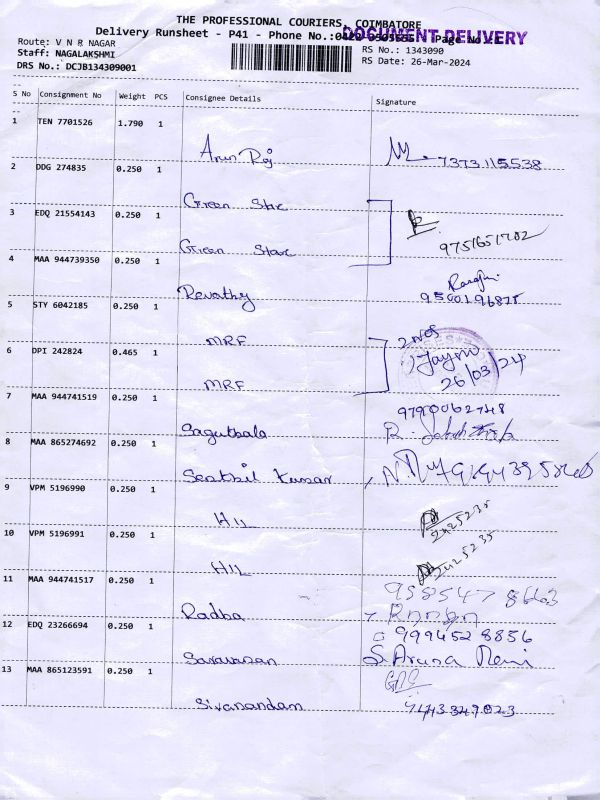 THE PROFESSIONAL COURIERS, COIMBATORE
Delivery Runsheet - P41 - Phone No.:0422
DOCUMENT DELIVERY
Route: V N R NAGAR
Staff: NAGALAKSHMI
DRS No.: DCJB134309001
RS No.: 1343090
RS Date: 26-Mar-2024
S No Consignment No Weight PCS Consignee Details Signature
1 TEN 7701526 1.790 1 Arun Raj 7373115538
2 DDG 274835 0.250 1 Green Star
3 EDQ 21554143 0.250 1 Green Star 9751651702
4 MAA 944739350 0.250 1 Revathy
5 STY 6042185 0.250 1 MRF 2 nos
6 DPI 242824 0.465 1 MRF 26/03/24
7 MAA 944741519 0.250 1 Sagutbala
8 MAA 865274692 0.250 1 Senthil Kumar
9 VPM 5196990 0.250 1 HIL
10 VPM 5196991 0.250 1 HIL
11 MAA 944741517 0.250 1 Radba
12 EDQ 23266694 0.250 1 Saravanan 9994528856
S. Aruna Mani
13 MAA 865123591 0.250 1 Sivanandam